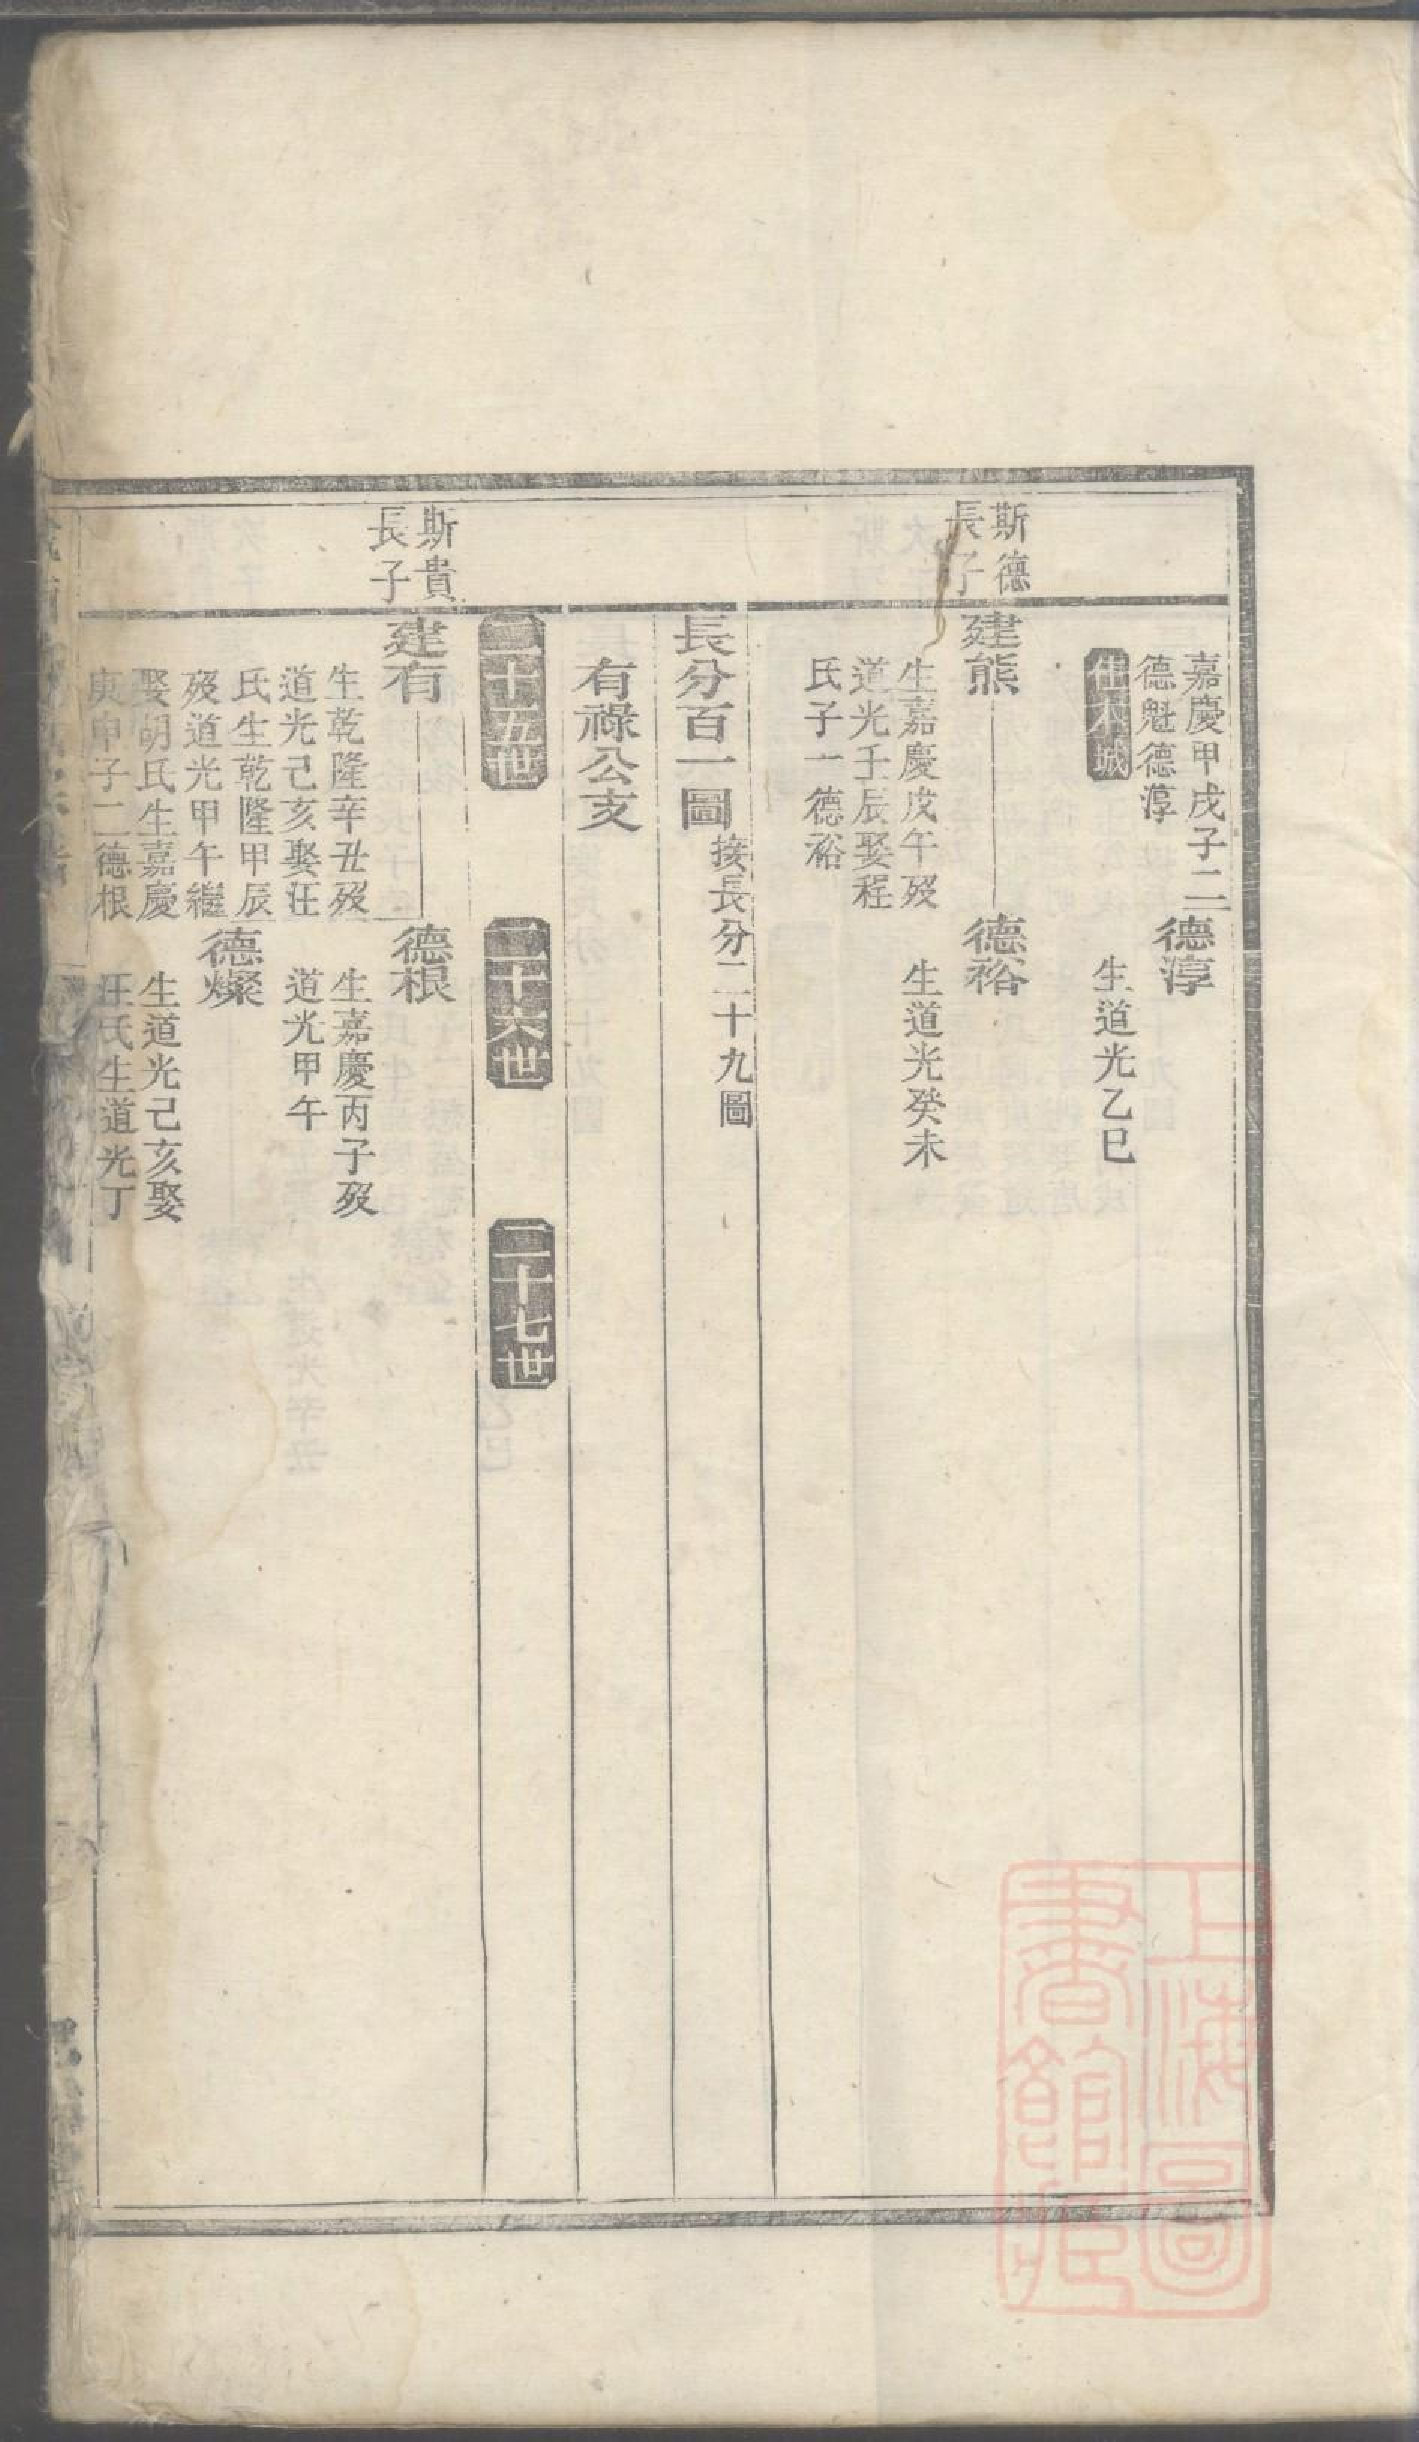 嘉慶甲戌子二
德魁德淳
德淳
生道光乙巳
住木城
斯德
長子
建熊
生嘉慶戊午殁
道光壬辰娶程
氏子一德裕
德裕
生道光癸未
長分百一圖
接長分二十九圖
有祿公支
二十五世
二十六世
二十七世
斯貴
長子
建有
生乾隆辛丑殁
道光己亥娶汪
氏生乾隆甲辰
殁道光甲午繼
娶胡氏生嘉慶
庚申子二德根
德根
生嘉慶丙子殁
道光甲午
德燦
生道光己亥娶
汪氏生道光丁
上海圖
書館藏